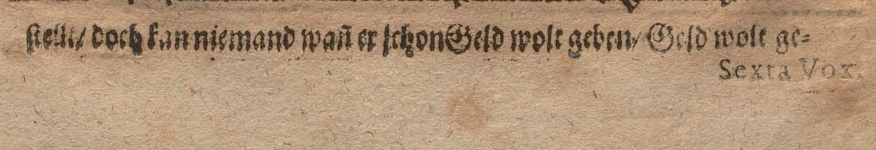 stellt/ doch kan niemand wañ er schon Geld wolt geben/ Geld wolt ge=
Sexta Vox.